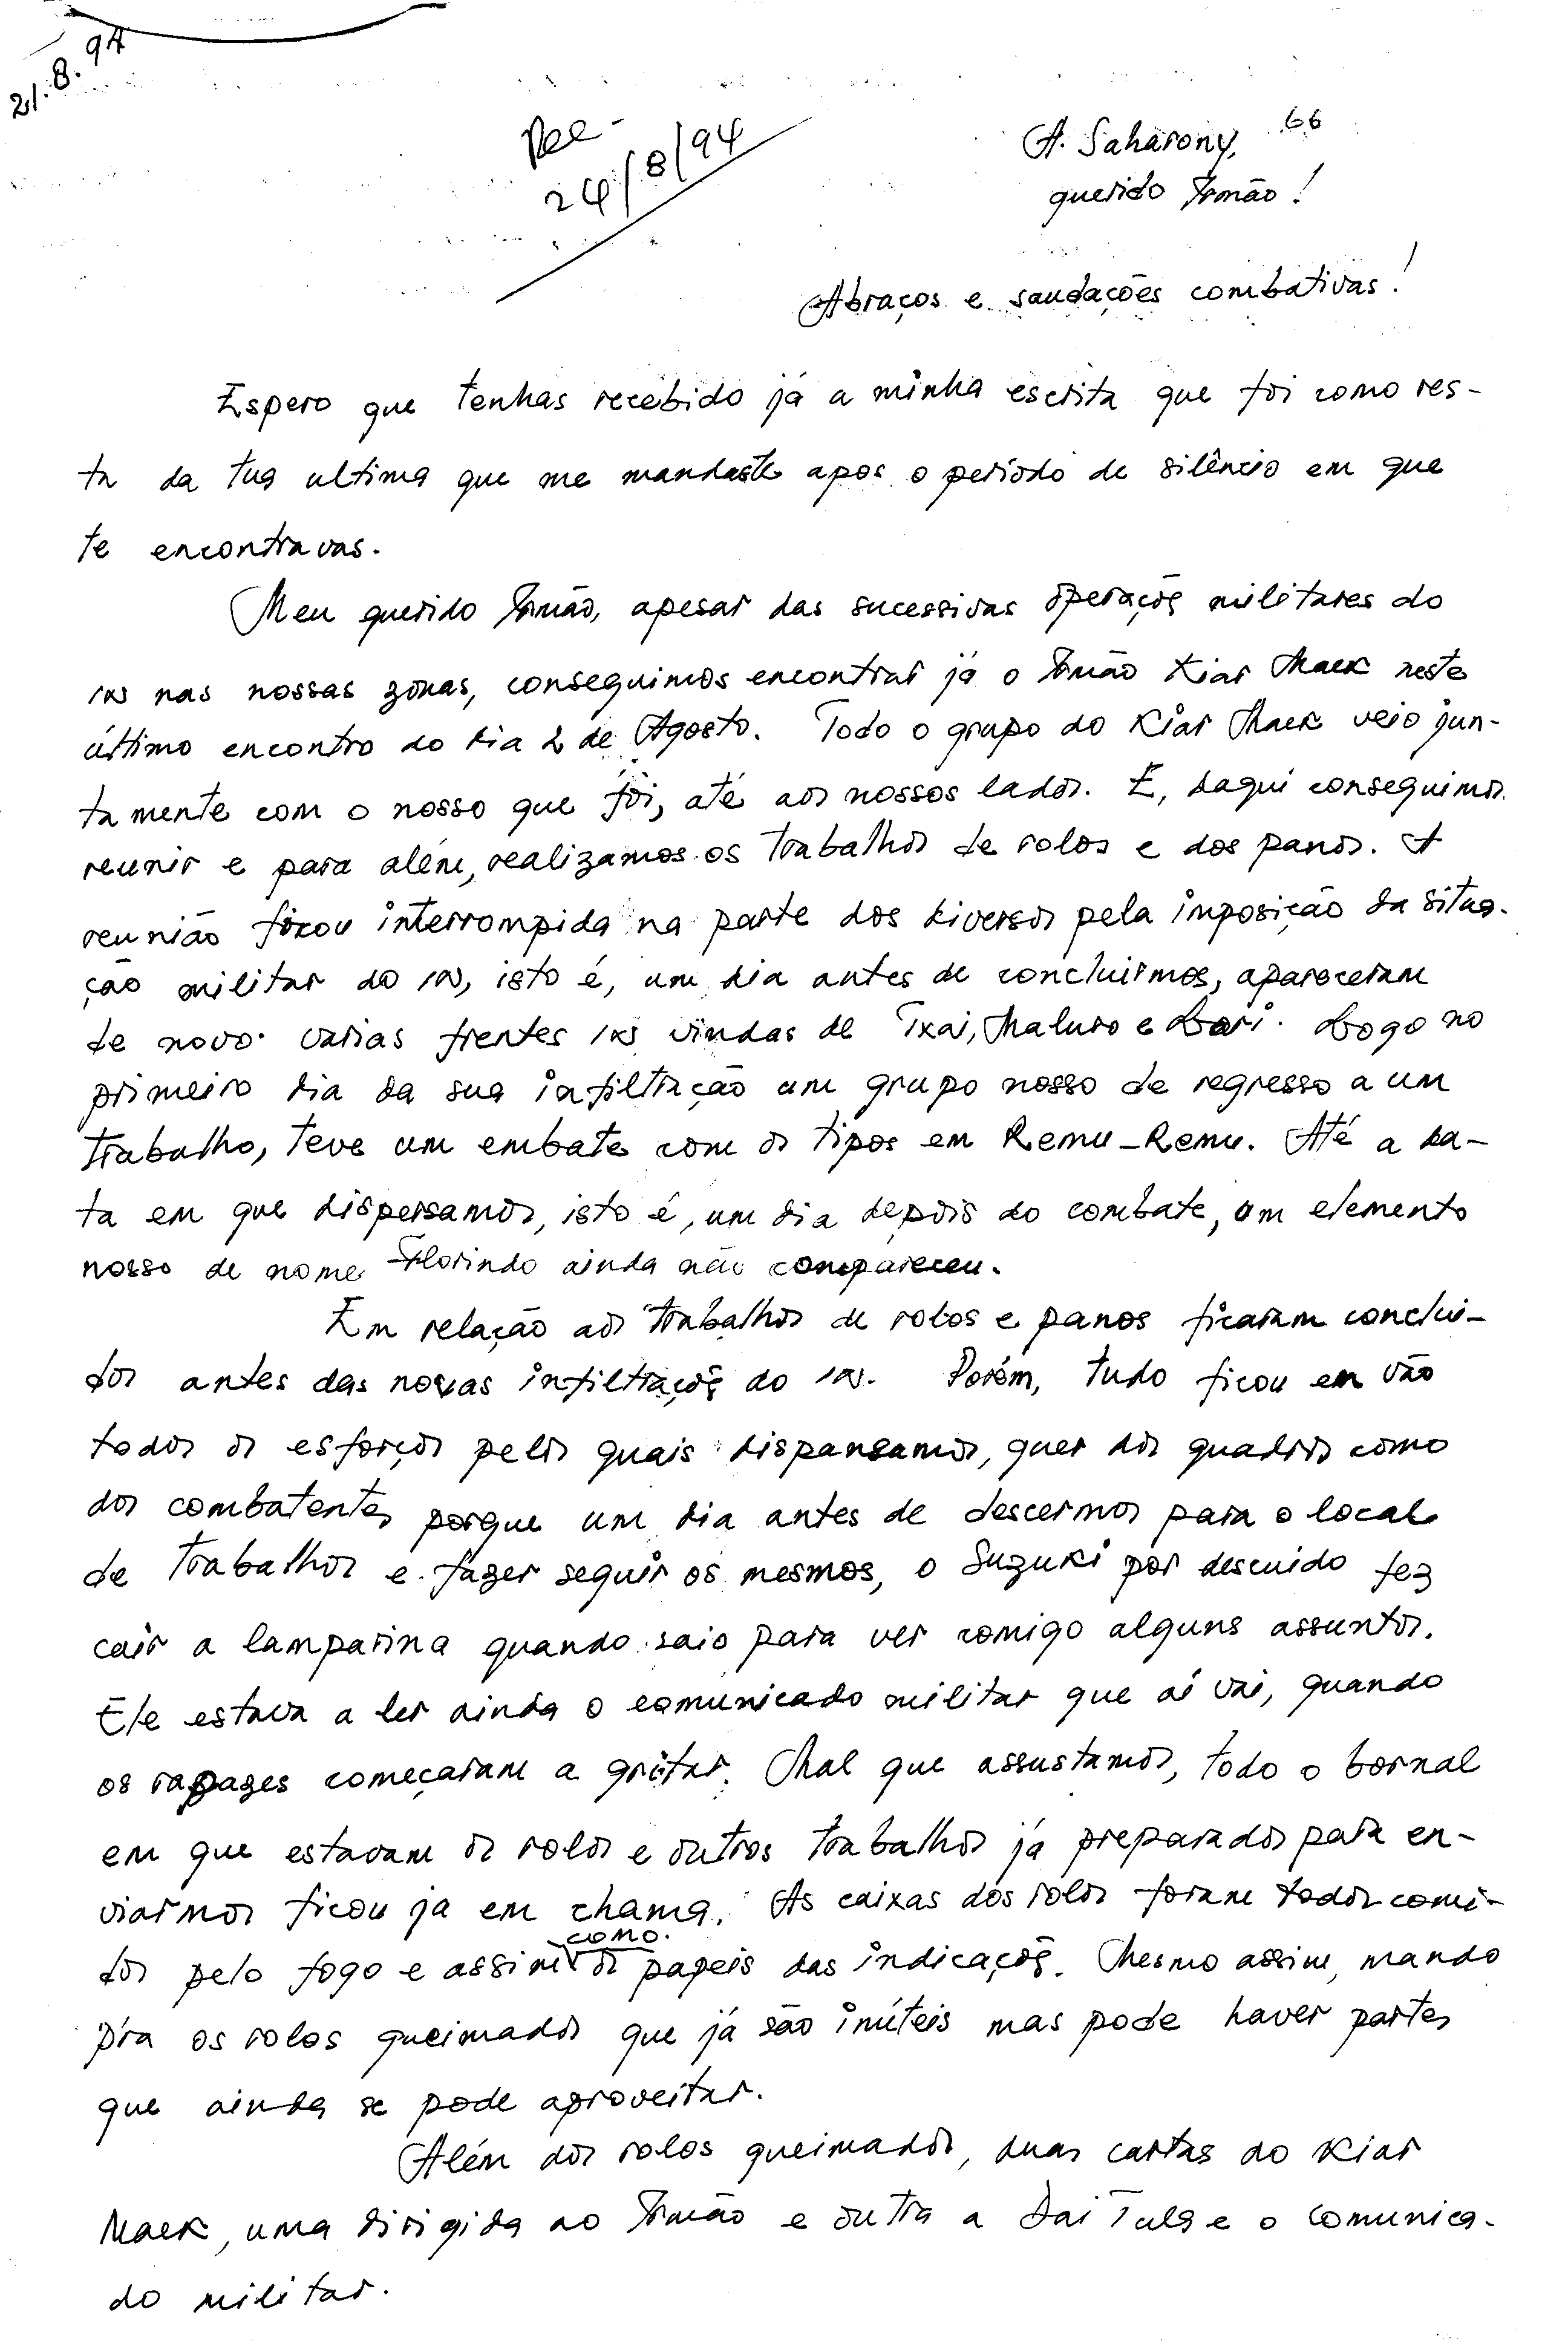 21.8.94
Rec-
24/8/94
66
A. Saharony,
querido Irmão!
Abraços e saudações combativas!
Espero que tenhas recebido já a minha escrita que foi como res-
ta da tua ultima que me mandaste apos o período de silêncio em que
te encontravas.
Meu querido Irmão, apesar das sucessivas operações militares do
in nas nossas zonas, conseguimos encontrar já o Irmão Kiar Maek neste
último encontro do dia 2 de Agosto. Todo o grupo do Kiar Maek veio jun-
tamente com o nosso que foi, até aos nossos lados. E, daqui conseguimos
reunir e para além, realizamos os trabalhos de rolos e dos panos. A
reunião ficou interrompida na parte dos diversos pela imposição da situa-
ção militar do in, isto é, um dia antes de concluirmos, apareceram
de novo varias frentes in vindas de Ixai, Maluro e Lari. Logo no
primeiro dia da sua infiltração um grupo nosso de regresso a um
trabalho, teve um embate com os tipos em Remu-Remu. Até a da-
ta em que dispersamos, isto é, um dia depois do combate, um elemento
nosso de nome Florindo ainda não compareceu.
Em relação aos trabalhos de rolos e panos ficaram conclui-
dos antes das novas infiltrações do in. Porém, tudo ficou em vão
todos os esforços pelos quais dispansamos, quer dos quadros como
dos combatentes porque um dia antes de descermos para o local
de trabalhos e fazer seguir os mesmos, o Suzuki por descuido fez
cair a lamparina quando saio para ver comigo alguns assuntos.
Ele estava a ler ainda o comunicado militar que aí vai, quando
os rapazes começaram a gritar. Mal que assustamos, todo o bornal
em que estavam os rolos e outros trabalhos já preparados para en-
viarmos ficou ja em chama. As caixas dos rolos foram todos comi-
dos pelo fogo e assim como os papeis das indicações. Mesmo assim, mando
p'ra os rolos queimados que já são inúteis mas pode haver partes
que ainda se pode aproveitar.
Além dos rolos queimados, duas cartas do Kiar
Maek, uma dirigida ao Irmão e outra a Dai Tula e o comunica-
do militar.